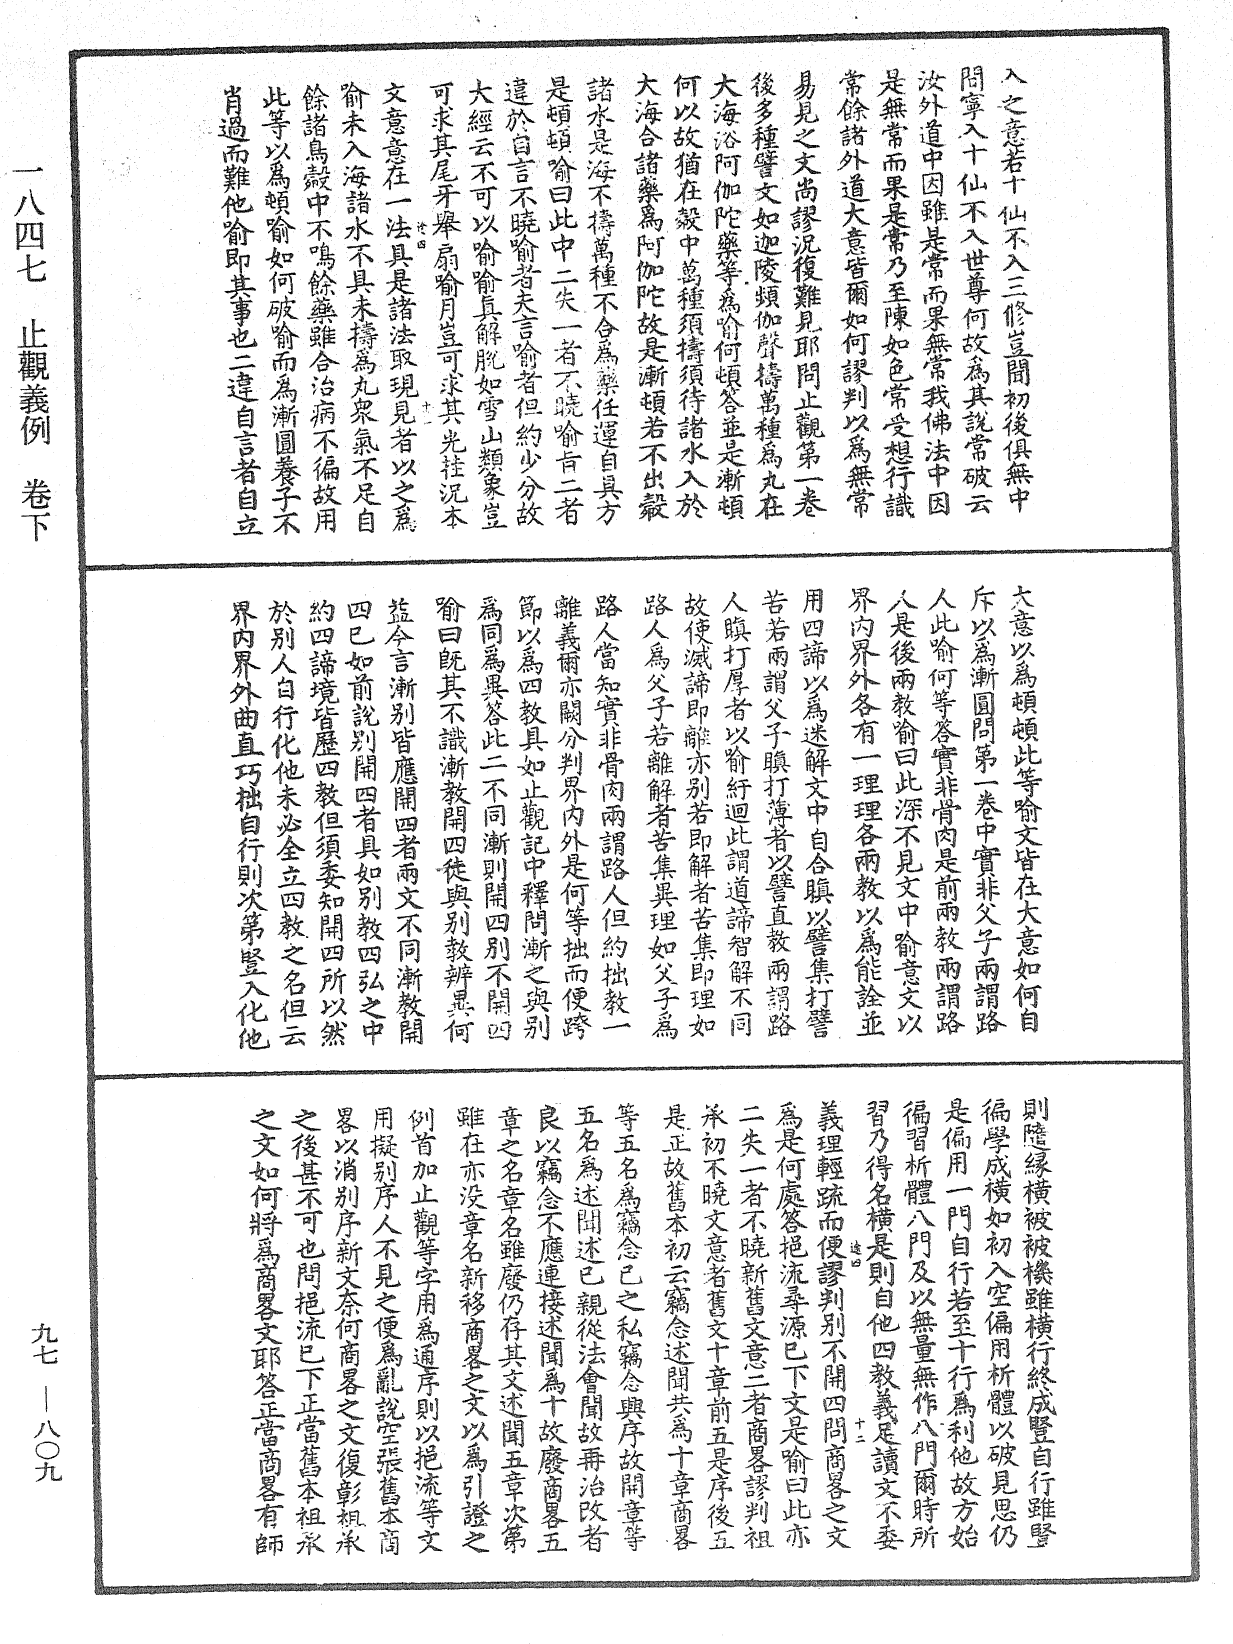 入之意若十仙不入三修豈聞初後俱無中
問寧入十仙不入世尊何故為其說常破云
汝外道中因雖是常而果無常我佛法中因
是無常而果是常乃至陳如色常受想行識
常餘諸外道大意皆爾如何謬判以為無常
易見之文尚謬況復難見耶問止觀第一卷
後多種譬文如迦陵頻伽聲擣萬種為丸在
大海浴阿伽陀藥等為喻何頓答並是漸頓
何以故猶在㲉中萬種須擣須待諸水入於
大海合諸藥為阿伽陀故是漸頓若不出㲉
諸水是海不擣萬種不合為藥任運自具方
是頓頓喻曰此中二失一者不曉喻旨二者
違於自言不曉喻者夫言喻者但約少分故
大經云不可以喻喻真解脫如雪山類象豈
可求其尾牙舉扇喻月豈可求其光桂況本
文意意在一法具是諸法取現見者以之為
喻未入海諸水不具未擣為丸衆氣不足自
餘諸鳥㲉中不鳴餘藥雖合治病不徧故用
此等以為頓喻如何破喻而為漸圓養子不
肖過而難他喻即其事也二違自言者自立
大意以為頓頓此等喻文皆在大意如何自
斥以為漸圓問第一卷中實非父子兩謂路
人此喻何等答實非骨肉是前兩教兩謂路
人是後兩教喻曰此深不見文中喻意文以
界內界外各有一理理各兩教以為能詮並
用四諦以為迷解文中自合瞋以譬集打譬
苦若兩謂父子瞋打薄者以譬直教兩謂路
人瞋打厚者以喻紆迴此謂道諦智解不同
故使滅諦即離亦別若即解者苦集即理如
路人為父子若離解者苦集異理如父子為
路人當知實非骨肉兩謂路人但約拙教一
離義爾亦闕分判界內外是何等拙而便跨
節以為四教具如止觀記中釋問漸之與別
為同為異答此二不同漸則開四別不開四
喻曰旣其不識漸教開四徒與別教辨異何
益今言漸別皆應開四者兩文不同漸教開
四已如前說別開四者具如別教四弘之中
約四諦境皆歷四教但須委知開四所以然
於別人自行化他未必全立四教之名但云
界內界外曲直巧拙自行則次第豎入化他
則隨緣橫被被機雖橫行終成豎自行雖豎
徧學成橫如初入空偏用析體以破見思仍
是偏用一門自行若至十行為利他故方始
徧習析體八門及以無量無作八門爾時所
習乃得名橫是則自他四教義足讀文不委
義理輕疏而便謬判別不開四問商畧之文
為是何處答挹流尋源已下文是喻曰此亦
二失一者不曉新舊文意二者商畧謬判祖
承初不曉文意者舊文十章前五是序後五
是正故舊本初云竊念述聞共為十章商畧
等五名為竊念已之私竊念興序故開章等
五名為述聞述已親從法會聞故再治改者
良以竊念不應連接述聞為十故廢商畧五
章之名章名雖廢仍存其文述聞五章次第
雖在亦没章名新移商畧之文以為引證之
例首加止觀等字用為通序則以挹流等文
用擬別序人不見之便為亂說空張舊本商
畧以消別序新文奈何商畧之文復彰祖承
之後甚不可也問挹流已下正當舊本祖承
之文如何將為商畧文耶答正當商畧有師
一八四七　止觀義例　卷下
九七—八〇九